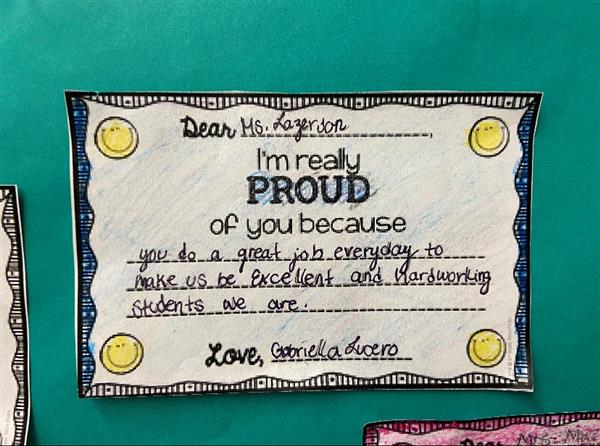 Dear Ms. Lazerson,
I'm really
PROUD
of you because
you do a great job everyday to
make us be Excellent and Hardworking
students we are.
Love, Gabriella Lucero
Mrs.